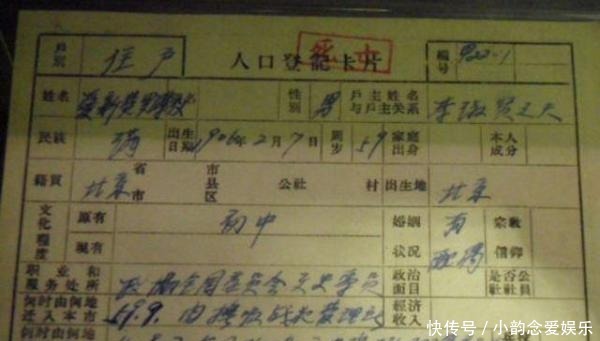 户别 住户 人口登记卡片 编号 922-1
姓名 爱新觉罗溥仪 性别 男 户主姓名与户主关系 李淑贤之夫
民族 满 出生日期 1906年2月7日 周岁 59 家庭出身 本人成分
籍贯 北京 省市 市县区 公社 村 出生地 北京
文化程度 原有 初中 婚姻状况 有配偶 宗教信仰
现有
职业和服务处所 政协全国委员会文史专员 政治面目 是否公社社员
何时由何地迁入本市 59.9. 由抚顺战犯管理所 经济收入
何时由何地
快传号/小韵念爱娱乐